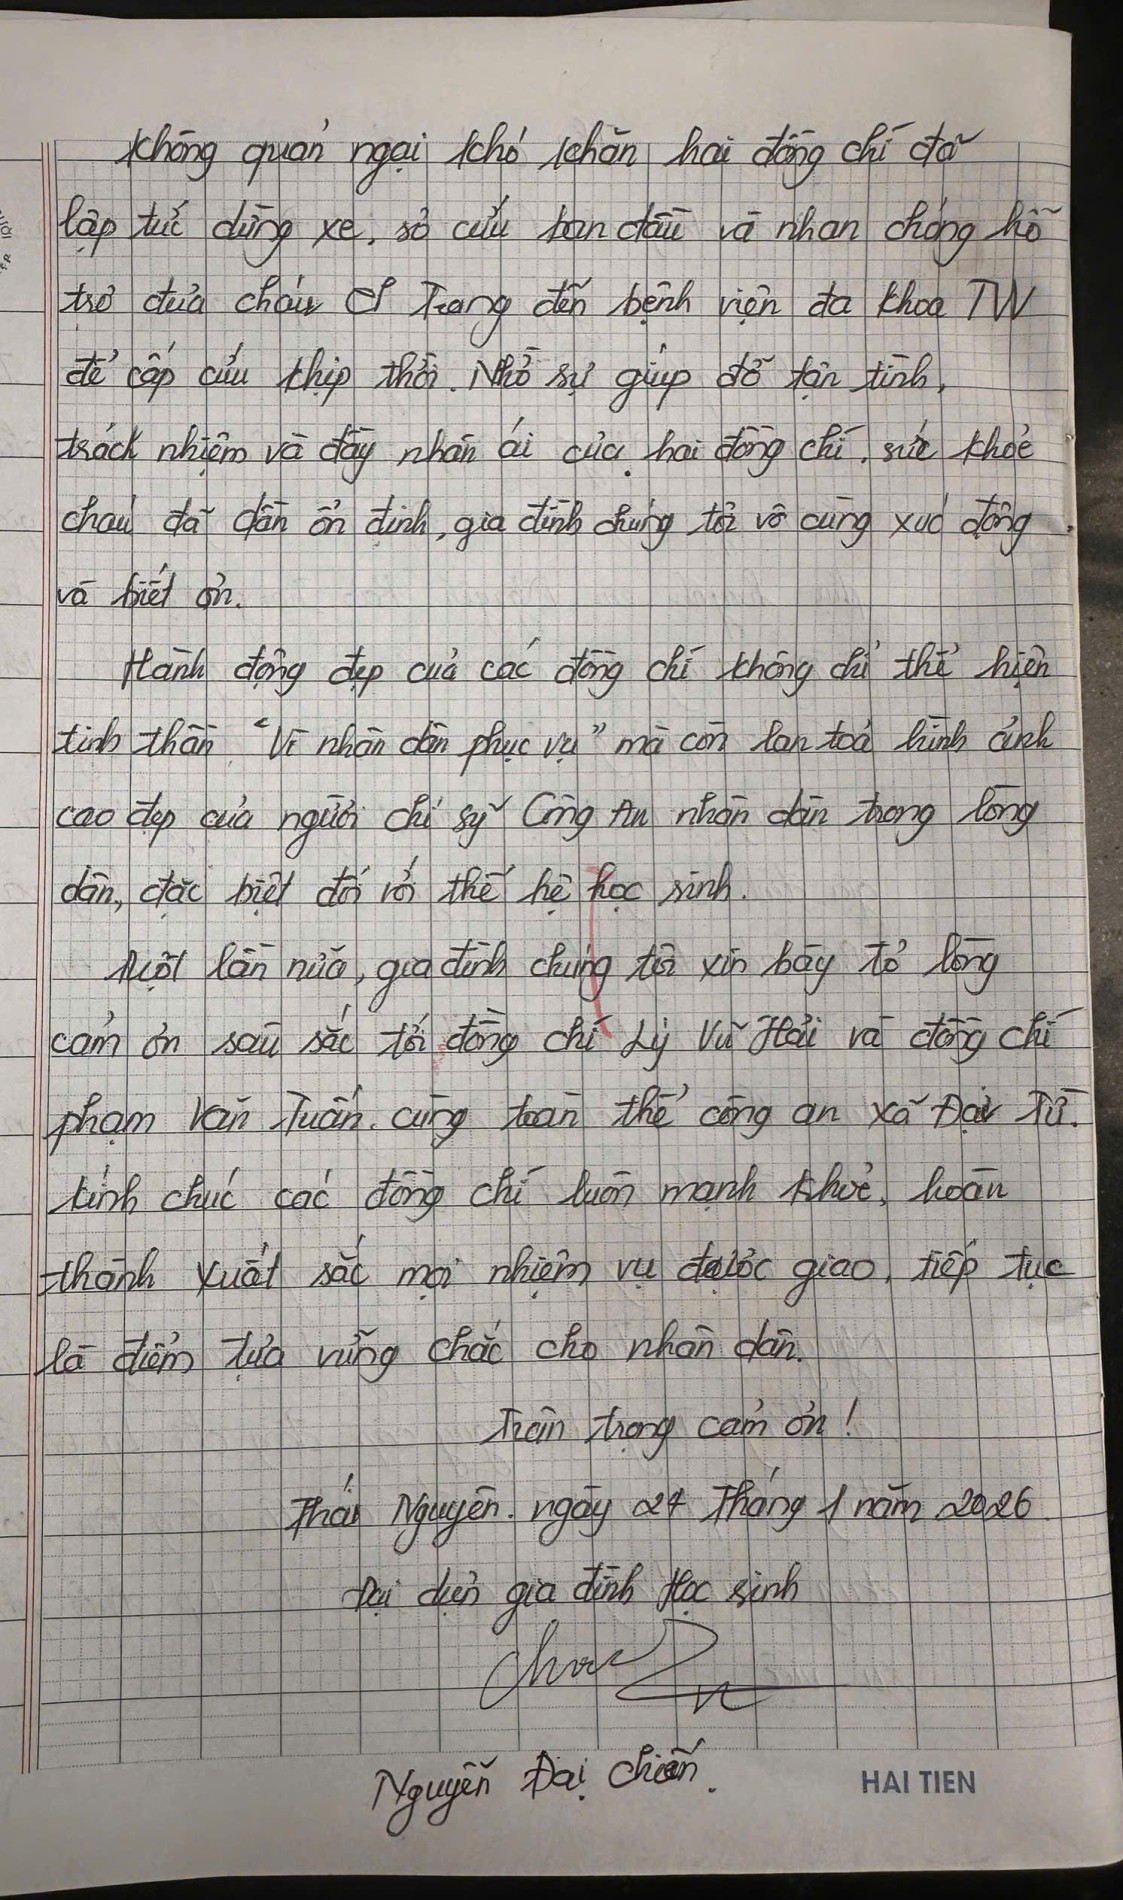 Không quản ngại khó khăn hai đồng chí đã
lập tức dừng xe, sơ cứu ban đầu và nhan chóng hỗ
trợ đưa cháu Trang đến bệnh viện đa khoa TW
để cấp cứu khịp thời. Nhờ sự giúp đỡ tận tình,
trách nhiệm và đầy nhân ái của hai đồng chí, sức khoẻ
cháu đã dần ổn định, gia đình chúng tôi vô cùng xúc động
và biết ơn.
Hành động đẹp của các đồng chí không chỉ thể hiện
tinh thần "Vì nhân dân phục vụ" mà còn lan toả hình ảnh
cao đẹp của người chí sỹ Công An nhân dân trong lòng
dân, đặc biệt đối với thế hệ học sinh.
Một lần nữa, gia đình chúng tôi xin bày tỏ lòng
cảm ơn sâu sắc tới đồng chí Lý Vũ Hải và đồng chí
phạm Văn Tuấn. cùng toàn thể công an xã Đại Từ.
kính chúc các đồng chí luôn mạnh khoẻ, hoàn
thành xuất sắc mọi nhiệm vụ được giao, tiếp tục
là điểm tựa vững chắc cho nhân dân.
Trân trọng cảm ơn!
Thái Nguyên. ngày 24 Tháng 1 năm 2026
Đại diện gia đình Học sinh
Nguyễn Đại Chiến.
HAI TIEN